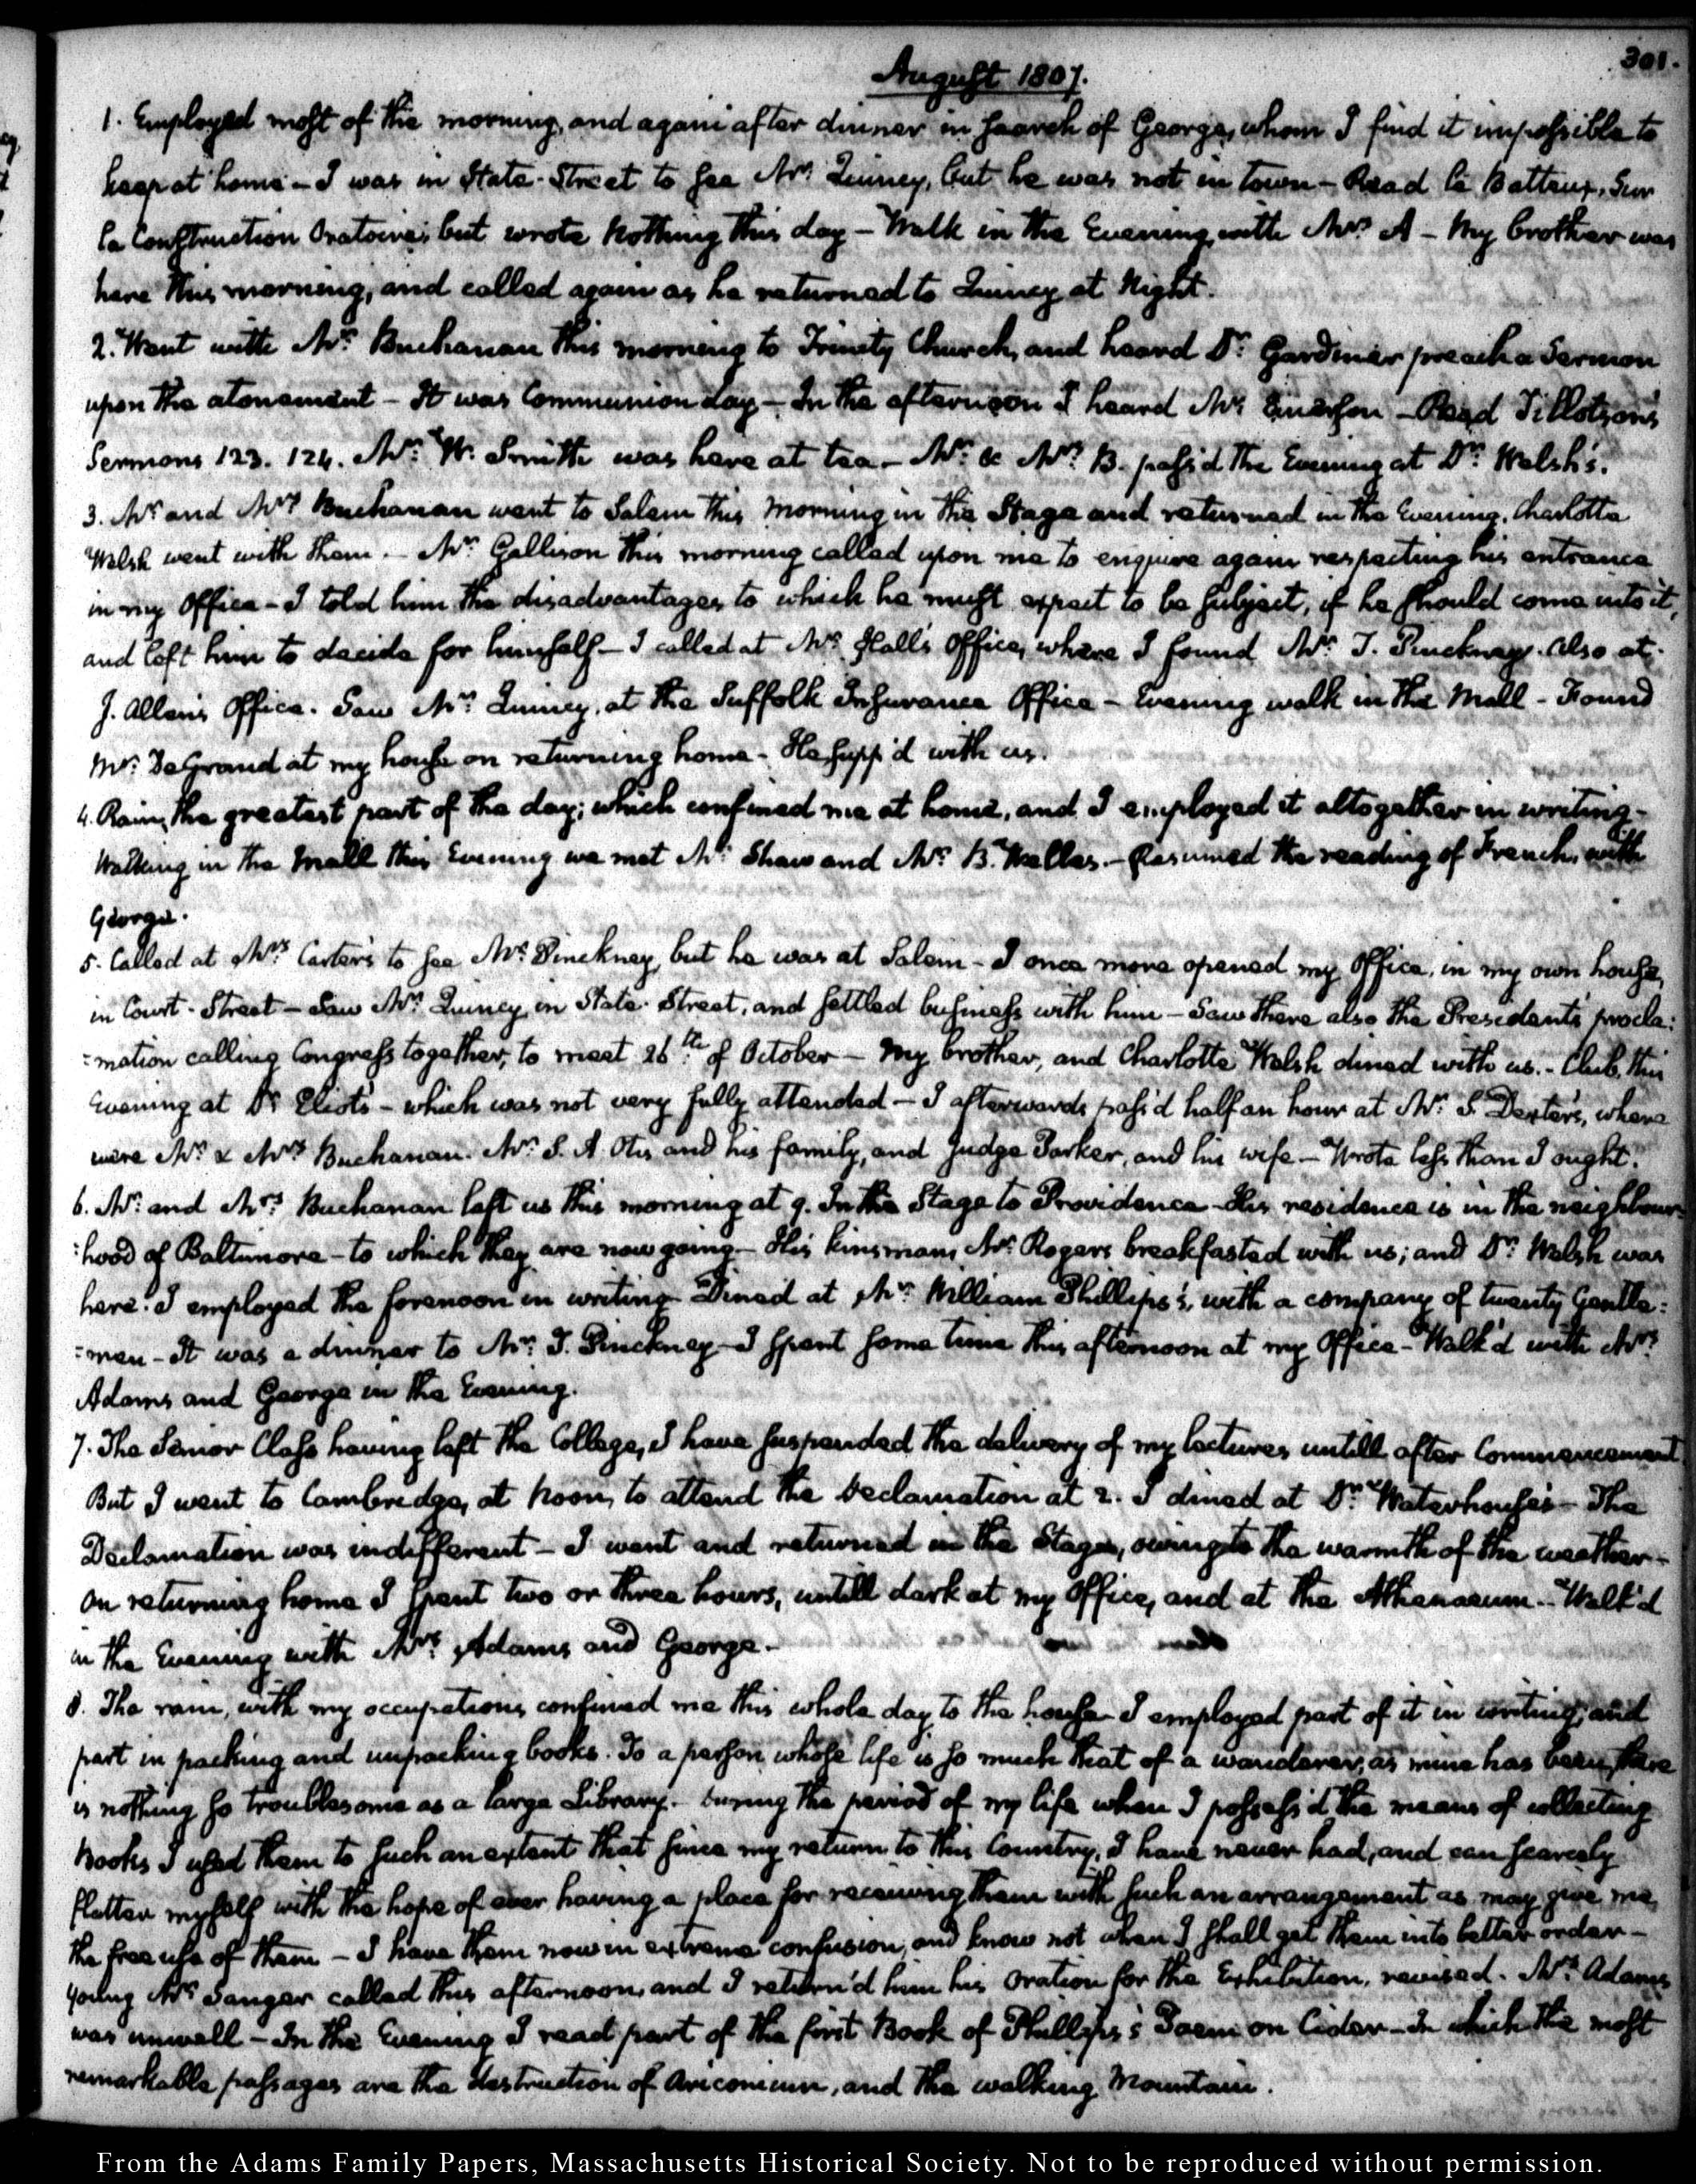 301.
August 1807.
1. Employed most of the morning, and again after dinner in search of George, whom I find it impossible to
keep at home – I was in State-Street to see Mr. Quincy, but he was not in town – Read Le Batteux, Sur
la Construction Oratoire; but wrote nothing this day – Walk in the Evening with Mrs. A – My brother was
here this morning, and called again as he returned to Quincy at Night.
2. Went with Mr. Buchanan this morning to Trinity Church, and heard Dr. Gardiner preach a Sermon
upon the atonement – It was Communion day – In the afternoon I heard Mr. Emerson – Read Tillotson's
Sermons 123. 124. Mr. W. Smith was here at tea – Mr. & Mrs. B. pass'd the Evening at Dr. Welsh's.
3. Mr. and Mrs. Buchanan went to Salem this morning in the Stage and returned in the Evening. Charlotte
Welsh went with them. – Mr. Gallison this morning called upon me to enquire again respecting his entrance
in my Office – I told him the disadvantages to which he must expect to be subject, if he should come into it,
and left him to decide for himself – I called at Mr. Hall's Office, where I found Mr. T. Pinckney. Also at
J. Allen's Office. Saw Mr. Quincy, at the Suffolk Insurance Office – Evening walk in the Mall – Found
Mr. DeGrand at my house on returning home – He supp'd with us.
4. Rain, the greatest part of the day; which confined me at home, and I employed it altogether in writing –
Walking in the Mall this Evening we met Mr. Shaw and Mr. B. Welles. – Resumed the reading of French, with
George.
5. Called at Mrs. Carter's to see Mr. Pinckney, but he was at Salem – I once more opened my Office, in my own house,
in Court-Street – Saw Mr. Quincy in State-Street, and settled business with him – Saw there also the President's procla:
:mation calling Congress together, to meet 26th. of October – My brother, and Charlotte Welsh dined with us. – Club, this
Evening at Dr. Eliot's – which was not very fully attended – I afterwards pass'd half an hour at Mr. S. Dexter's, where
were Mr. & Mrs. Buchanan. Mr. S. A. Otis and his family, and Judge Parker, and his wife – Wrote less than I ought.
6. Mr. and Mrs. Buchanan left us this morning at 9. In the Stage to Providence – His residence is in the neighbour:
:hood of Baltimore – to which they are now going – His kinsman, Mr. Rogers breakfasted with us; and Dr. Welsh was
here. I employed the forenoon in writing – Dined at Mr. William Phillips's, with a company of twenty Gentle:
:men – It was a dinner to Mr. T. Pinckney – I spent some time this afternoon at my Office – Walk'd with Mrs.
Adams and George in the Evening.
7. The Senior Class having left the College, I have suspended the delivery of my lectures untill after Commencement
But I went to Cambridge, at Noon, to attend the Declamation at 2. I dined at Dr. Waterhouse's – The
Declamation was indifferent – I went and returned in the Stage, owing to the warmth of the weather –
On returning home I spent two or three hours, untill dark at my Office, and at the Athenaeum – Walk'd
in the Evening with Mrs. Adams and George –
8. The rain, with my occupations confined me this whole day to the house – I employed part of it in writing, and
part in packing and unpacking books. To a person whose life is so much that of a wanderer, as mine has been, there
is nothing so troublesome as a large Library. During the period of my life when I possess'd the means of collecting
Books I used them to such an extent that since my return to this Country, I have never had, and can scarcely
flatter myself with the hope of ever having a place for receiving them with such an arrangement as may give me
the free use of them – I have them now in extreme confusion, and know not when I shall get them into better order –
Young Mr. Sanger called this afternoon, and I return'd him his Oration for the Exhibition, revised. Mrs. Adams
was unwell – In the Evening I read part of the first Book of Phillips's Poem on Cider – In which the most
remarkable passages are the destruction of Ariconium, and the walking Mountain.
From the Adams Family Papers, Massachusetts Historical Society. Not to be reproduced without permission.